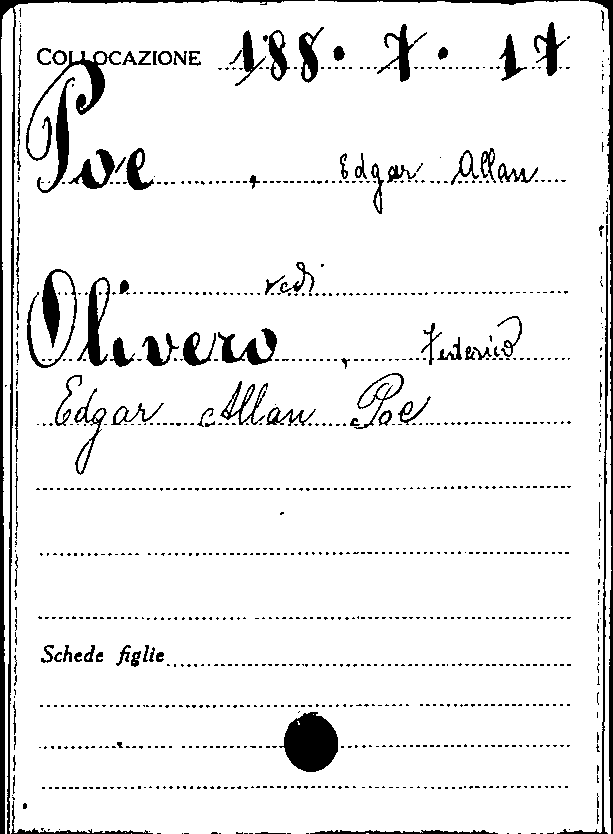 COLLOCAZIONE 188 • 7 • 17
Poe , Edgar Allan
vedi
Olivero , Federico
Edgar Allan Poe
Schede figlie